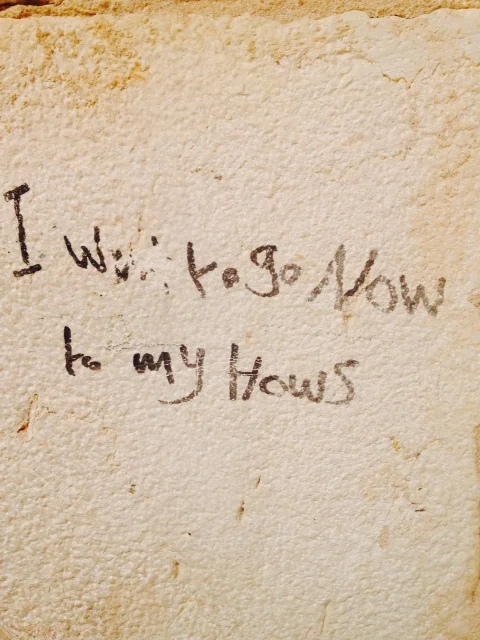 I want to go Now
to my Hows